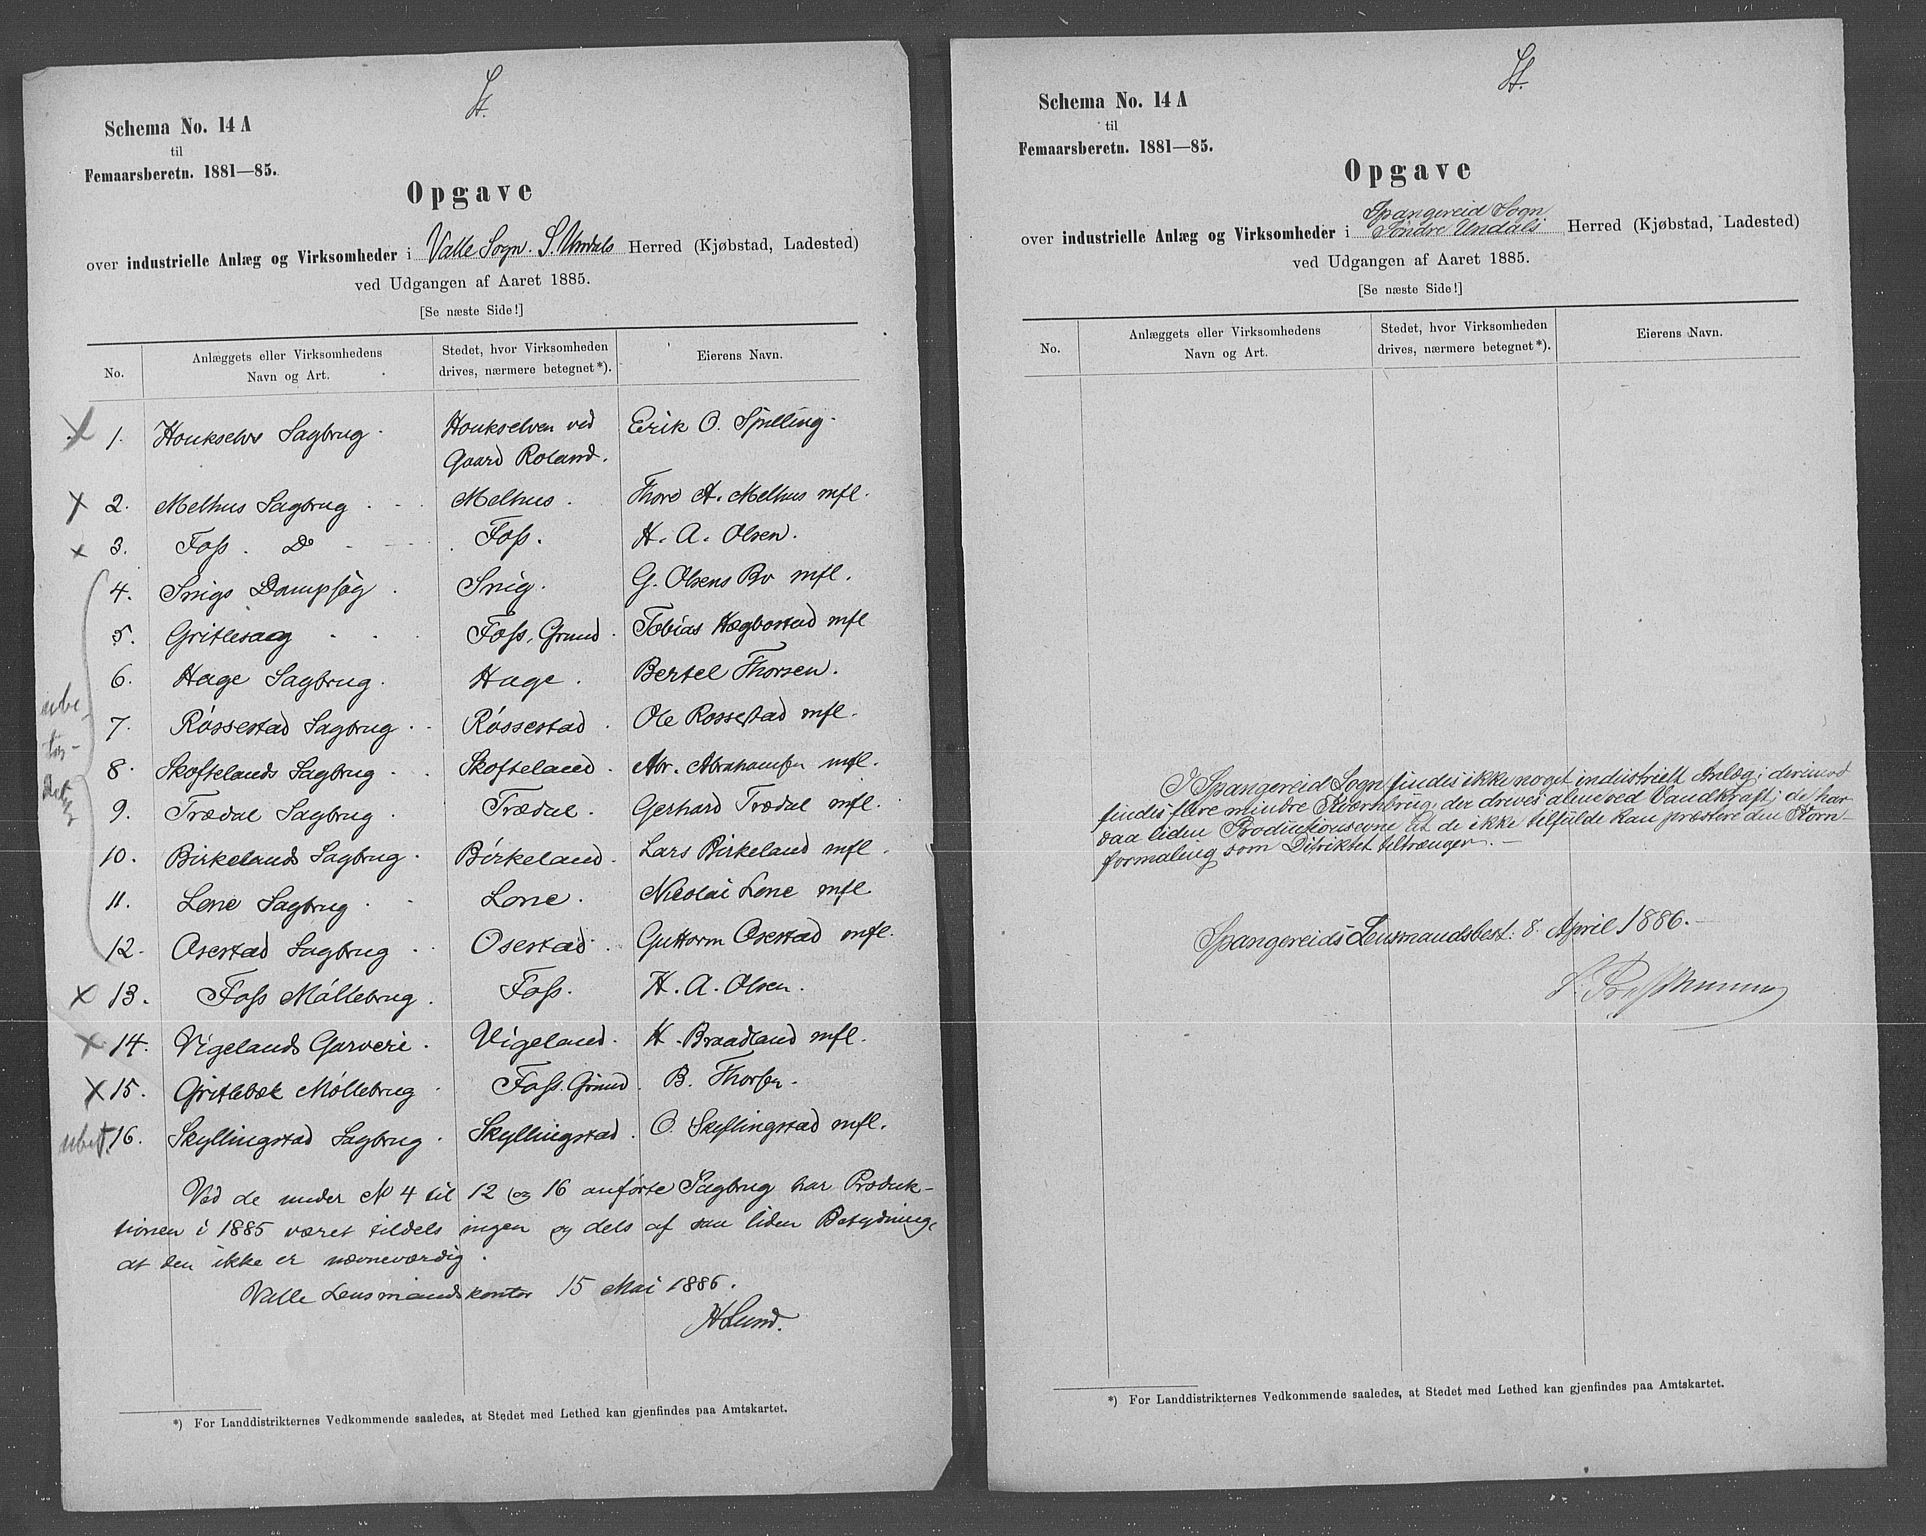 St.
Schema No. 14 A
til
Femaarsberetn. 1881—85.
Opgave
over industrielle Anlæg og Virksomheder i Valle Sogn. S. Undals Herred (Kjøbstad, Ladested)
ved Udgangen af Aaret 1885.
[Se næste Side!]
No. Anlæggets eller Virksomhedens Navn og Art. Stedet, hvor Virksomheden drives, nærmere betegnet*). Eierens Navn.
x 1. Houkselvs Sagbrug. Houkselven ved Erik O. Spilling.
Gaard Roland.
x 2. Melhus Sagbrug Melhus. Thore A. Melhus mfl.
x 3. Foss. Do Foss. H. A. Olsen.
4. Snigs Dampsag Snig. G. Olsens Bo mfl.
5. Gritlesaag Foss, Grund. Tobias Hægbostad mfl
6. Hage Sagbrug. Hage. Bertel Thorsen.
7. Røssestad Sagbrug Røssestad Ole Rossestad mfl.
8. Skoftelands Sagbrug Skofteland. Abr. Abrahamsen mfl.
9. Trædal Sagbrug Trædal. Gerhard Trædal mfl.
10. Birkelands Sagbrug Birkeland. Lars Birkeland mfl.
11. Lene Sagbrug Lene. Nicolai Lene mfl.
12. Osestad Sagbrug Osestad Guttorm Osestad mfl.
x 13. Foss Møllebrug. Foss. H. A. Olsen.
x 14. Vigelands Garveri. Vigeland. H. Braadland mfl.
x 15. Gritlebæk Møllebrug Foss. Grund. B. Thorsen.
ubet. 16. Skyllingstad Sagbrug. Skyllingstad. O Skyllingstad mfl.
Ved de under No 4 til 12 og 16 anførte Sagbrug har Produk-
tionen i 1885 været tildels ingen og dels af saa liden Betydning,
at den ikke er nævneværdig.
Valle Lensmandskontor 15 Mai 1886.
H Lund.
*) For Landdistrikternes Vedkommende saaledes, at Stedet med Lethed kan gjenfindes paa Amtskartet.
St.
Schema No. 14 A
til
Femaarsberetn. 1881—85.
Opgave
Spangereid Sogn
over industrielle Anlæg og Virksomheder i Søndre Undals Herred (Kjøbstad, Ladested)
ved Udgangen af Aaret 1885.
[Se næste Side!]
No. Anlæggets eller Virksomhedens Navn og Art. Stedet, hvor Virksomheden drives, nærmere betegnet*). Eierens Navn.
I Spangereid Sogn findes ikke noget industrielt Anlæg; derimod
findes flere mindre Kværnbrug, der dreves alene ved Vandkraft; de har
saa liden Productionsevne at de ikke tilfulde kan præstere den Korn-
formaling som Ditriktet tiltrænger.—
Spangereids Lensmandsbest. 8. April 1886.—
*) For Landdistrikternes Vedkommende saaledes, at Stedet med Lethed kan gjenfindes paa Amtskartet.